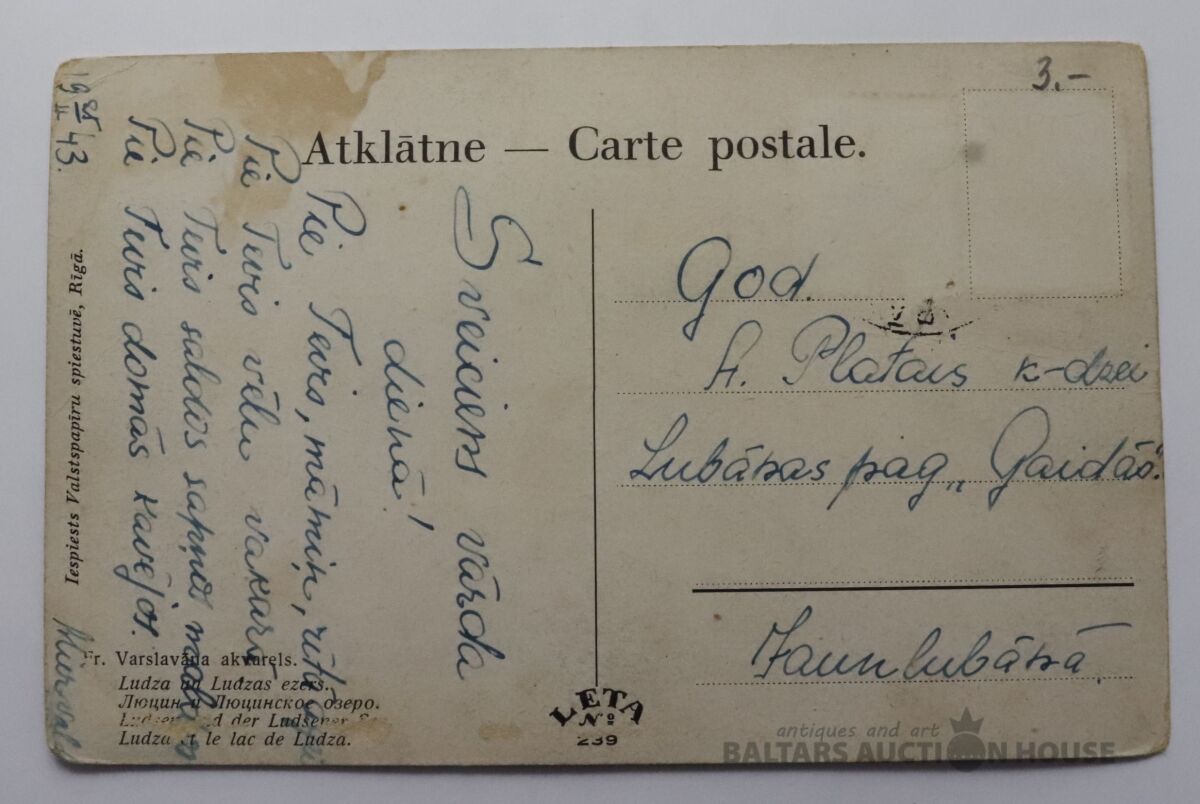 3.-
Atklātne — Carte postale.
19 43.
Sveiciens vārda
dienā!
Pie Tevis, māmiņ,
Pie Tevis vēlu vakarā,
Pie Tevis saldos sapņos
Pie Tevis domās kavējos.
God.
A. Platais k-dzei
Lubānas pag „Gaidās".
Jaunlubānā
Iespiests Valstspapīru spiestuvē, Rīgā.
Fr. Varslavāna akvarels.
Ludza un Ludzas ezers.
Люцин и Люцинское озеро.
Ludsen und der Ludsener
Ludza et le lac de Ludza.
LETA
№
239
antiques and art
BALTARS AUCTION HOUSE